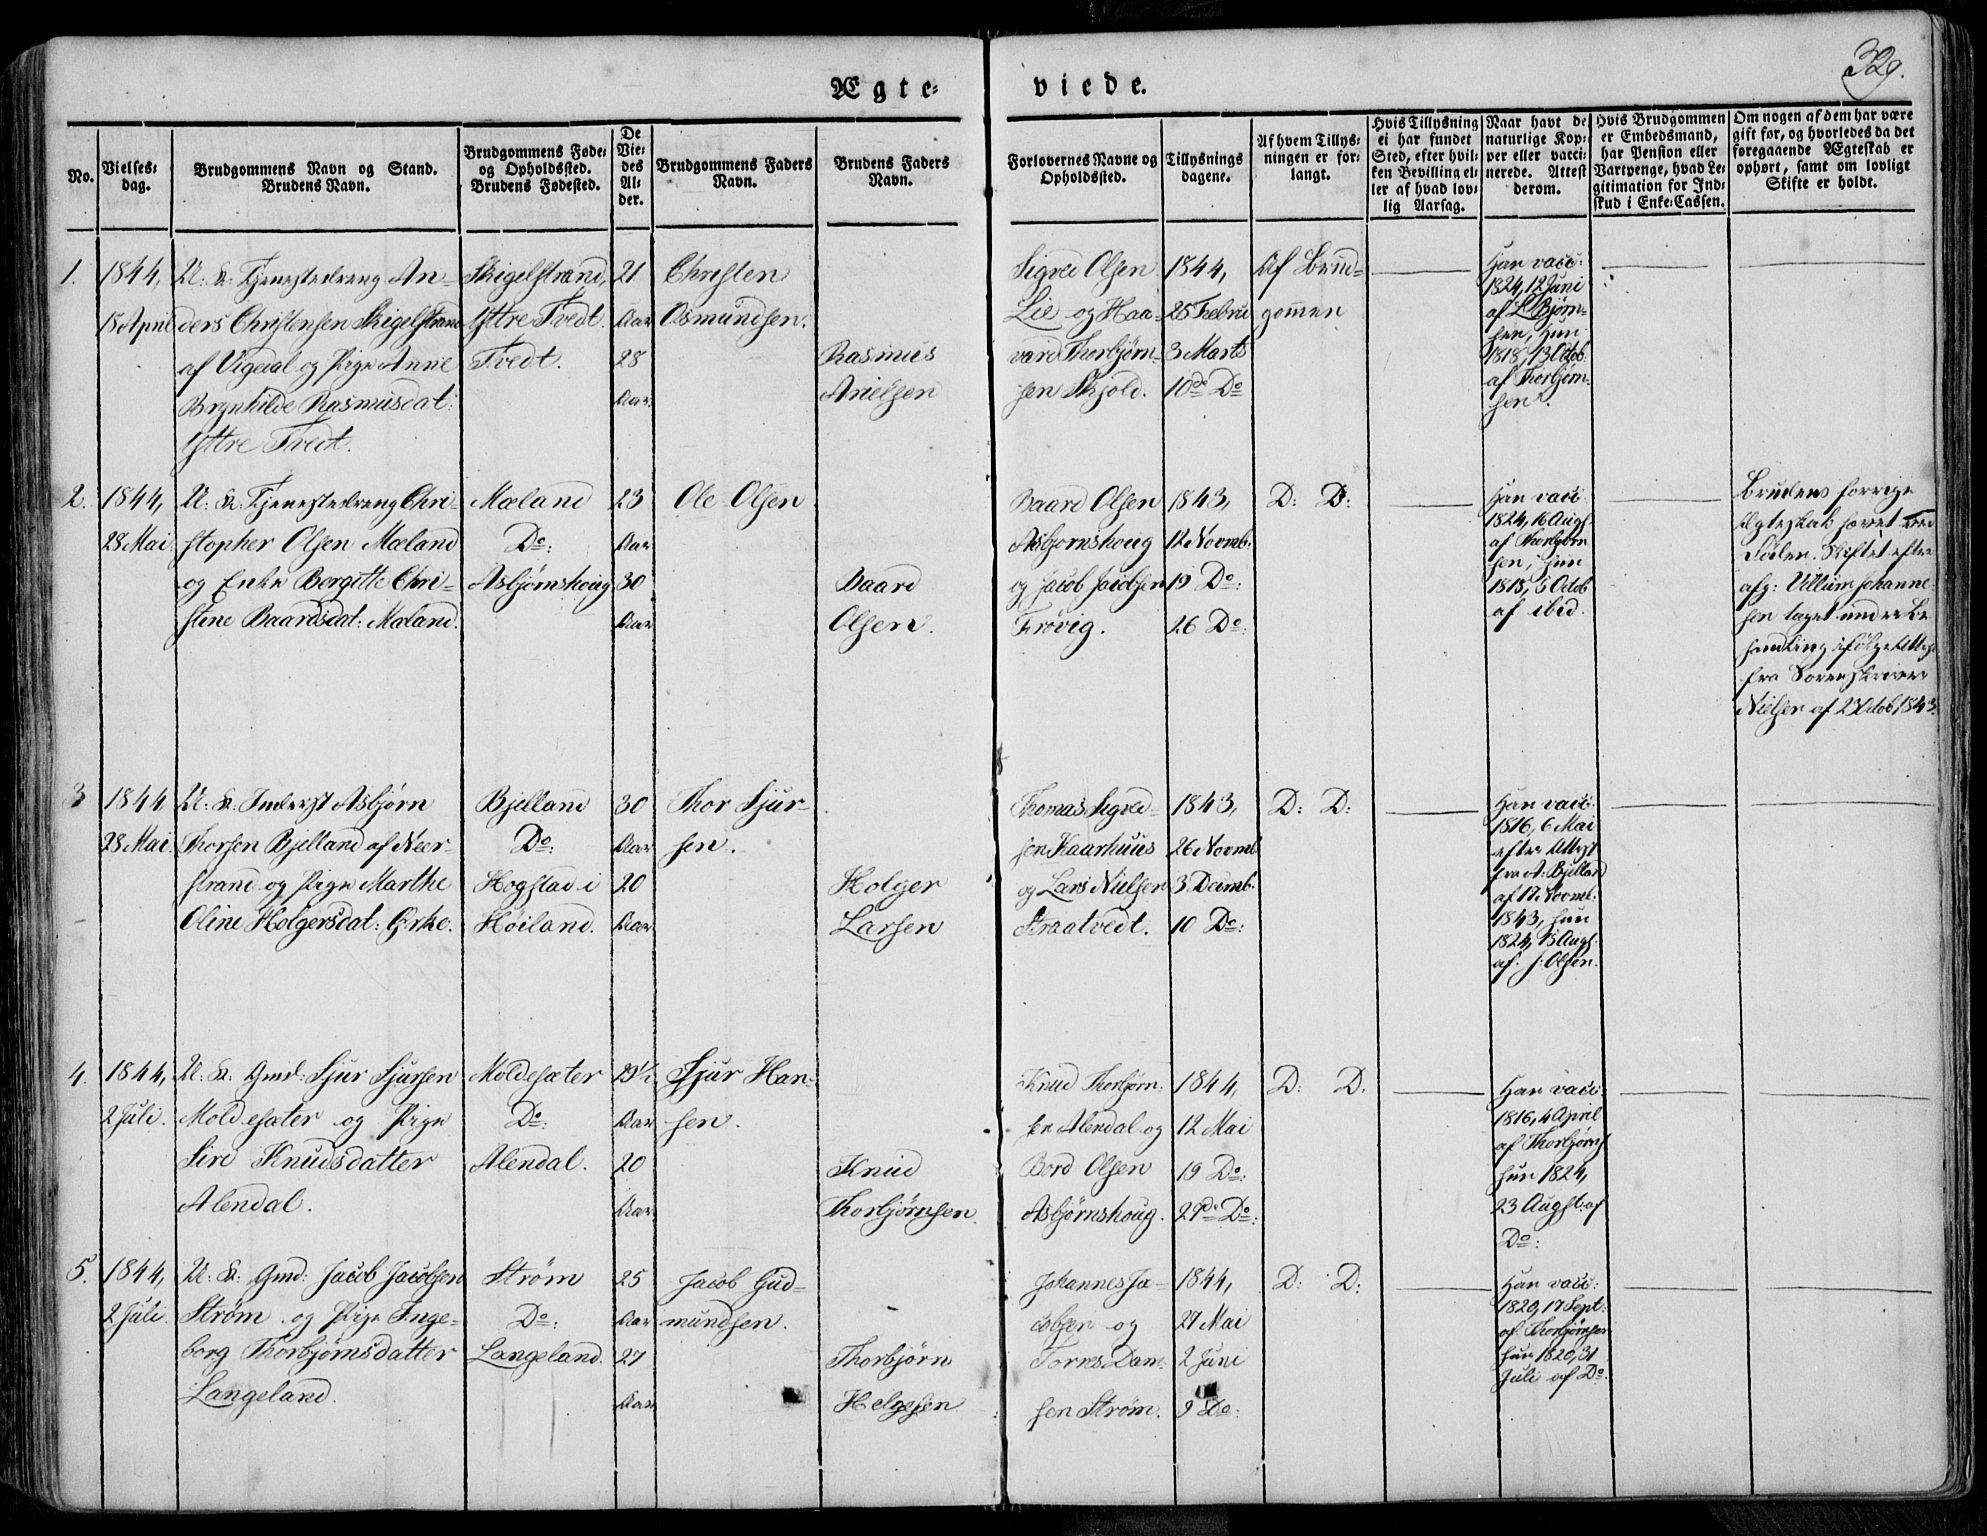 329.
Ægte-
viede.
No.
Vielses-
dag.
Brudgommens Navn og Stand.
Brudens Navn.
Brudgommens Føde-
og Opholdssted.
Brudens Fødested.
De
Vie-
des
Al-
der.
Brudgommens Faders
Navn.
Brudens Faders
Navn.
Forlovernes Navne og
Opholdssted.
Tillysnings
dagene.
Af hvem Tillys-
ningen er for-
langt.
Hvis Tillysning
ei har fundet
Sted, efter hvil-
ken Bevilling el-
ler af hvad lov-
lig Aarsag.
Naar havt de
naturlige Kop-
per eller vacci-
nerede. Attest
derom.
Hvis Brudgommen
er Embedsmand,
har Pension eller
Vartpenge, hvad Le-
gitimation for Ind-
skud i Enke-Cassen.
Om nogen af dem har være
gift før, og hvorledes da det
foregaaende Ægteskab er
ophørt, samt om lovligt
Skifte er holdt.
1.
1844,
15 April
U: K: Tjenestedreng An-
ders Christensen Skigelstrand
af Vigedal og Pige Anne
Brynhilde Rasmusdat:
Yttre Tvedt.
Skigelstrand,
Yttre Tvedt.
Tvedt.
21
Aar
28
Aar.
Christen
Osmundsen.
Rasmus
Arielsen
Sigved Olsen
Lie og Haa-
vard Thorbjørn-
sen Skjold.
1844,
25 Februa
3 Marts
10de Do
Af Brud-
gommen
Han vacc:
1824, 12 Juni
af L. Bjørn-
sen, hun
1818, 13 Octob.
af Thorbjørn-
sen.
2.
1844,
28 Mai.
U: K: Tjenestedreng Chri-
stopher Olsen Mæland
og Enke Borgitte Chri-
stine Baardsdat: Mæland.
Mæland
Do:
Asbjørnshoug
23
Aar
30
Aar
Ole Olsen
Baard
Olsen.
Baard Olsen
Asbjørnshoug
og Jacob Jacobsen
Frøvig.
1843,
12 Novmb:
19 Do:
26 Do:
D: D:
Han vacc:
1824, 16 Augs.
af Thorbjørn
sen, hun
1818, 5 Octob
af ibid.
Brudens forrige
Ægteskab hævet ved
Døden. Skiftet efter
afg: Villum Johanne-
sen taget under Be
handling ifølge Attest
fra Sorenskriver
Nielsen af 23 Octob 1843.
3
1844
28 Mai.
U: K: Inderst Asbjørn
Thorsen Bjelland af Neer-
strand og Pige Marthe
Oline Holgersdat: Ørke.
Bjelland
Do:
Hogstad i
Høiland.
30
Aar
20
Aar.
Thor Sjur-
sen.
Holger
Larsen
Thomas Sigved-
sen Kaarhuus
og Lars Nielsen
Straatvedt.
1843,
26 Novmb
3 Decmb.
10 Do:
D: D:
Han vacc:
1816, 6 Mai
efter Attest
fra A: Bjelland
af 17 Novmb:
1843, hun
1824, 13 Augs.
af J: Olsen.
4.
1844,
2 Juli.
U: K: Gmd: Sjur Sjursen
Moldesæter og Pige
Siri Knudsdatter
Alendal.
Moldesæter
Do:
Alendal.
29½
Aar
20
Aar.
Sjur Han-
sen.
Knud
Thorbjørnsen.
Knud Thorbjørn-
sen Alendal og
Bord Olsen
Asbjørnshoug.
1844,
12 Mai
19 Do:
27de Do:
D: D.
Han vacc:
1816, 4 April
af Thorbjørns.
hun 1824,
23 Augst: af
Do:
5.
1844,
2 Juli.
U: K: Gmd: Jacob Jacobsen
Strøm og Pige Inge-
borg Thorbjørnsdatter
Langeland.
Strøm
Do:
Langeland.
25
Aar
27
Aar.
Jacob Gud-
mundsen.
Thorbjørn
Helgesen
Johannes Ja-
cobsen og
Torres Dam-
sen Strøm.
1844,
27 Mai
2 Juni
9 Do:
D: D:
Han vacc:
1820, 17 Sept:
af Thorbjørnsen
hun 1820, 31
Juli af Do.